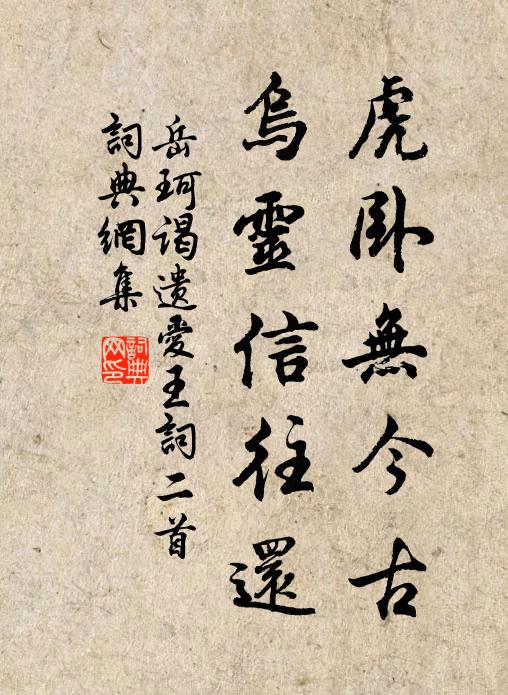 虎卧無今古
烏靈信往還
岳珂謁遺愛王詞二首
詞典網集
詞典網印